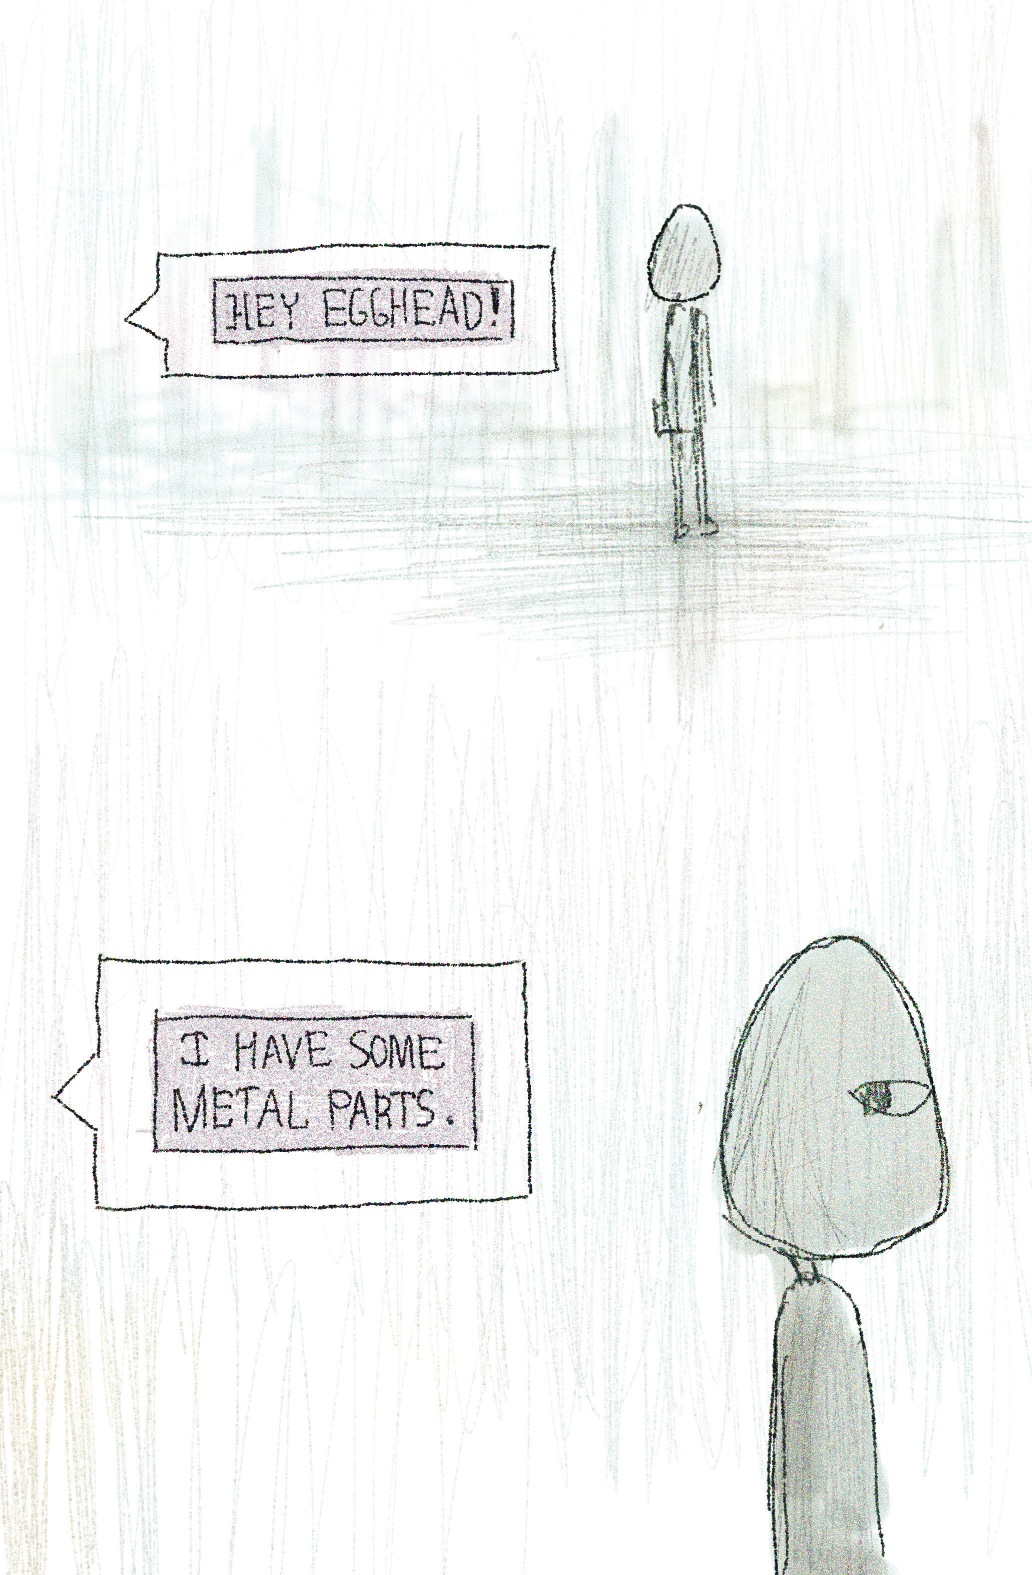 HEY EGGHEAD!
I HAVE SOME
METAL PARTS.